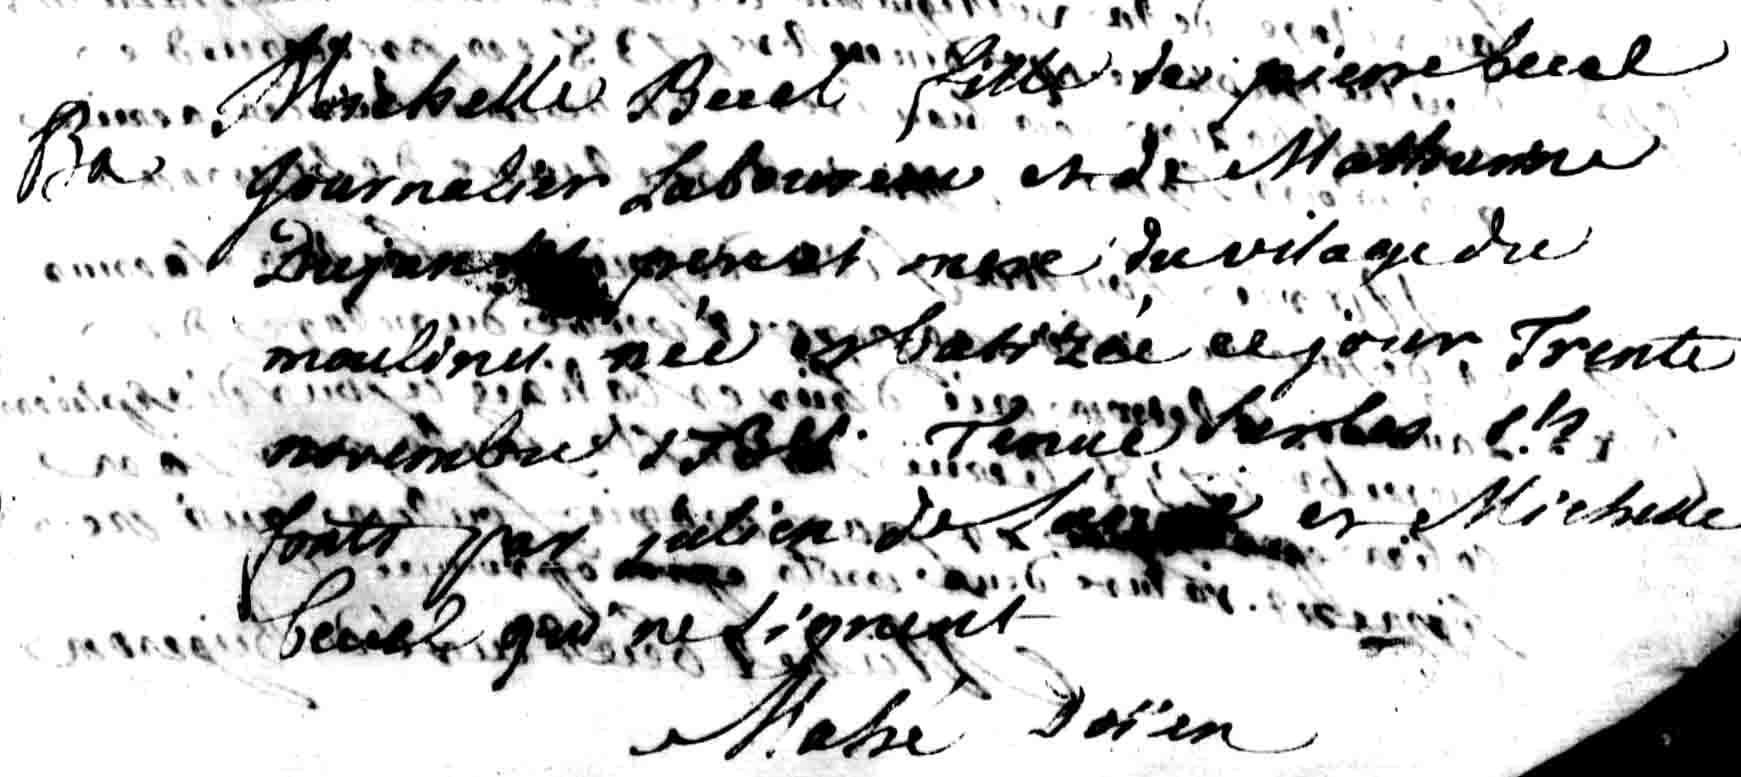 Michelle Becel fille de pierre becel
Ba journalier Laboureur et de Mathurine
pere et mere du vilage du
moulinet née et batizée ce jour Trente
novembre Tenue sur les S.ts
fonts par julien de et Michelle
becel qui ne signent
Mahé Doïen